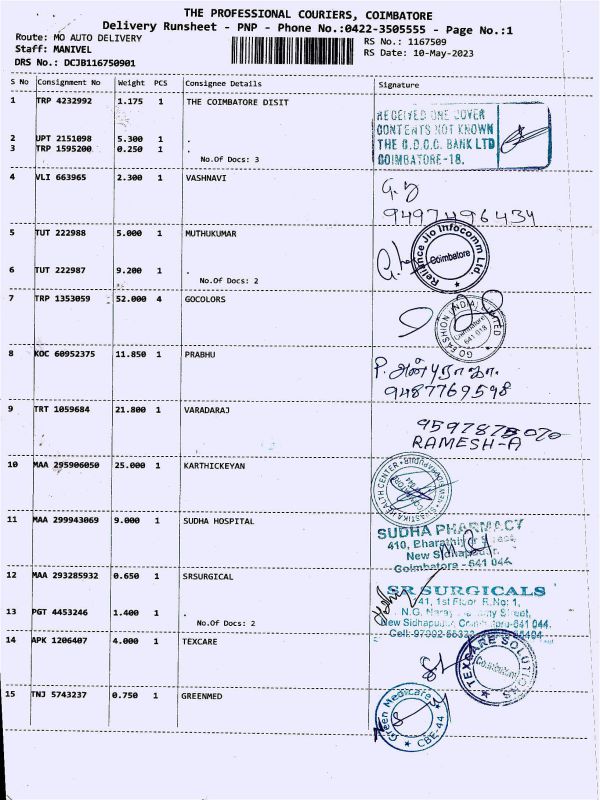 THE PROFESSIONAL COURIERS, COIMBATORE
Delivery Runsheet - PNP - Phone No.:0422-3505555 - Page No.:1
Route: MO AUTO DELIVERY
RS No.: 1167509
Staff: MANIVEL
RS Date: 10-May-2023
DRS No.: DCJB116750901
S No Consignment No Weight PCS Consignee Details Signature
1 TRP 4232992 1.175 1 THE COIMBATORE DISIT
RECEIVED ONE COVER
CONTENTS NOT KNOWN
THE C.D.C.C. BANK LTD
COIMBATORE-18.
2 UPT 2151098 5.300 1 .
3 TRP 1595200 0.250 1 .
No.Of Docs: 3
4 VLI 663965 2.300 1 VASHNAVI
9497496434
5 TUT 222988 5.000 1 MUTHUKUMAR
Reliance Jio Infocomm Ltd.
Coimbatore
6 TUT 222987 9.200 1 .
No.Of Docs: 2
7 TRP 1353059 52.000 4 GOCOLORS
GO FASHION (INDIA) LIMITED
Coimbatore
641 018
8 KOC 60952375 11.850 1 PRABHU
P. அன்புராஜா.
9487769598
9 TRT 1059684 21.800 1 VARADARAJ
RAMESH-A
10 MAA 295906050 25.000 1 KARTHICKEYAN
HEALTH CENTER
11 MAA 299943069 9.000 1 SUDHA HOSPITAL
SUDHA PHARMACY
410, Bharathiyar Street,
New Sidhapudur,
Coimbatore - 641 044.
12 MAA 293285932 0.650 1 SRSURGICAL
SR SURGICALS
41, 1st Floor R.No: 1,
N.G. Street,
New Sidhapudur, Coimbatore-641 044.
Cell:
13 PGT 4453246 1.400 1 .
No.Of Docs: 2
14 APK 1206407 4.000 1 TEXCARE
TEXCARE SOLUTIONS
Coimbatore
15 TNJ 5743237 0.750 1 GREENMED
Green Medicare
CBE-44